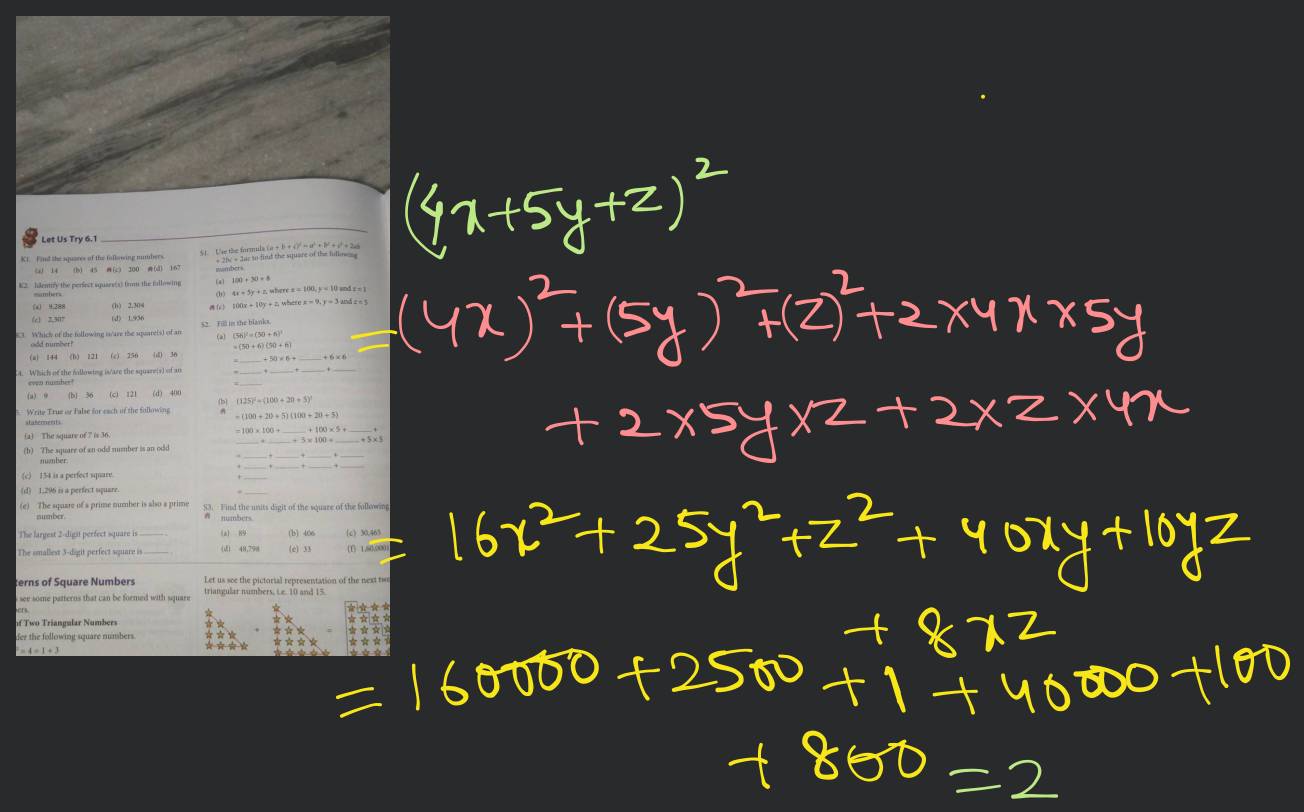 Let Us Try 6.1
K1. Find the squares of the following numbers.
(a) 14 (b) 45 (c) 200 (d) 167
K2. Identify the perfect square(s) from the following
numbers.
(a) 9,288 (b) 2,304
(c) 2,307 (d) 1,936
K3. Which of the following is/are the square(s) of an
odd number?
(a) 144 (b) 121 (c) 256 (d) 36
4. Which of the following is/are the square(s) of an
even number?
(a) 9 (b) 36 (c) 121 (d) 400
5. Write True or False for each of the following
statements.
(a) The square of 7 is 36.
(b) The square of an odd number is an odd
number.
(c) 154 is a perfect square.
(d) 1,296 is a perfect square.
(e) The square of a prime number is also a prime
number.
The largest 2-digit perfect square is ______.
The smallest 3-digit perfect square is ______.
terns of Square Numbers
see some patterns that can be formed with square
ers.
of Two Triangular Numbers
der the following square numbers.
² = 4 = 1 + 3
S1. Use the formula (a + b + c)² = a² + b² + c² + 2ab
+ 2bc + 2ac to find the square of the following
numbers.
(a) 100 + 30 + 8
(b) 4x + 5y + z, where x = 100, y = 10 and z = 1
(c) 100x + 10y + z, where x = 9, y = 3 and z = 5
S2. Fill in the blanks.
(a) (56)² = (50 + 6)²
= (50 + 6) (50 + 6)
= ____ + 50 × 6 + ____ + 6 × 6
= ____ + ____ + ____ + ____
= ____
(b) (125)² = (100 + 20 + 5)²
= (100 + 20 + 5) (100 + 20 + 5)
= 100 × 100 + ____ + 100 × 5 + ____ +
____ + ____ + 5 × 100 + ____ + 5 × 5
= ____ + ____ + ____ + ____
+ ____ + ____ + ____ + ____
+ ____
= ____
S3. Find the units digit of the square of the following
numbers.
(a) 89 (b) 406 (c) 30,465
(d) 48,798 (e) 33 (f) 1,60,000
Let us see the pictorial representation of the next two
triangular numbers, i.e. 10 and 15.
+ =
(4x+5y+z)²
=(4x)²+(5y)²+(z)²+2×4x×5y
+2×5y×z+2×z×4x
= 16x²+25y²+z²+40xy+10yz
+8xz
=160000+2500+1+40000+100
+800 =2